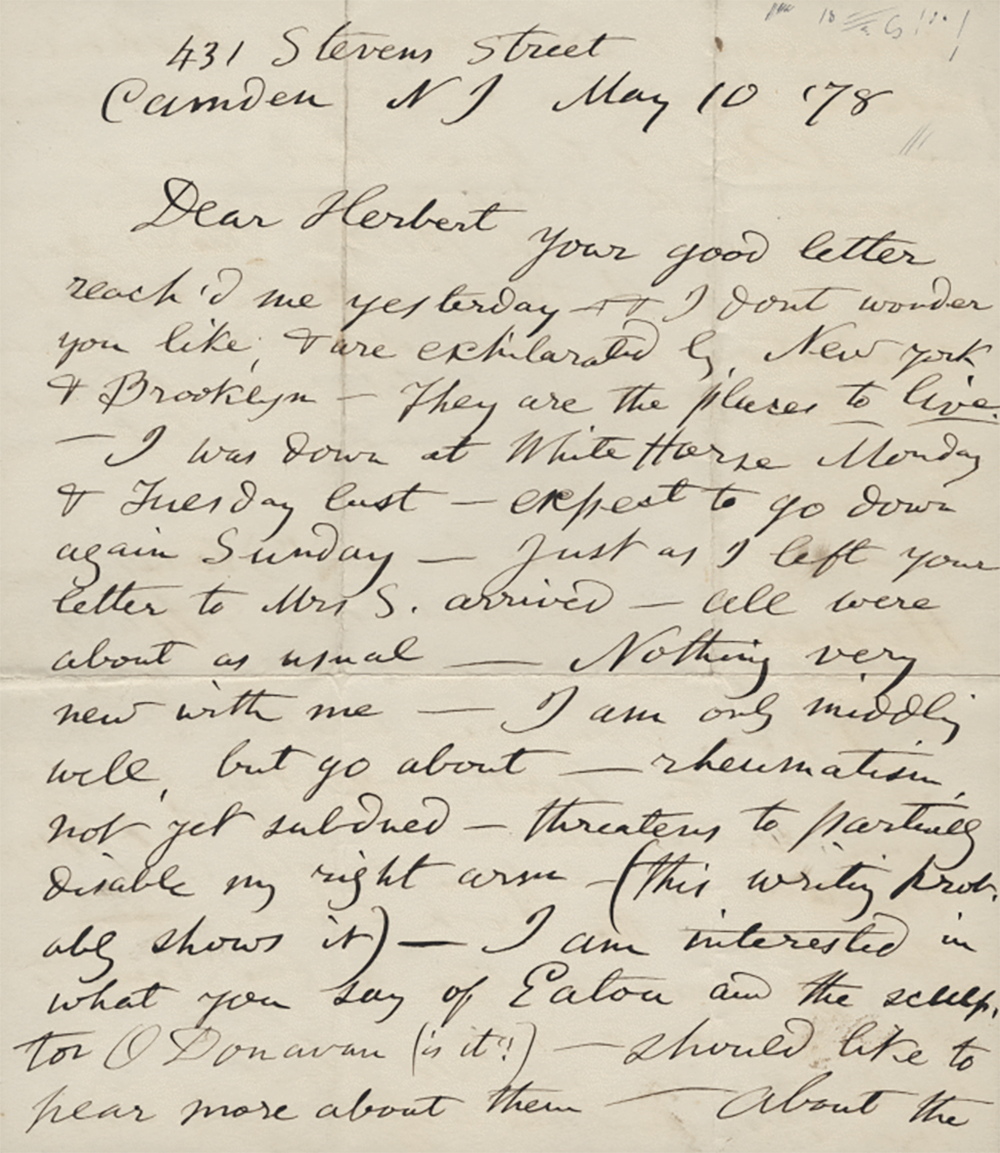 431 Stevens Street
Camden N J May 10 '78
Dear Herbert
Your good letter
reach'd me yesterday — & I dont wonder
you like, & are exhilarated by, New York
& Brooklyn — They are the places to live.
— I was down at White Horse Monday
& Tuesday last — expect to go down
again Sunday — Just as I left your
letter to Mrs S. arrived — all were
about as usual — Nothing very
new with me — I am only middling
well, but go about — rheumatism,
not yet subdued — threatens to partially
disable my right arm — (this writing prob-
ably shows it) — I am interested in
what you say of Eaton and the sculp-
tor O Donavan (is it?) — should like to
hear more about them — About the